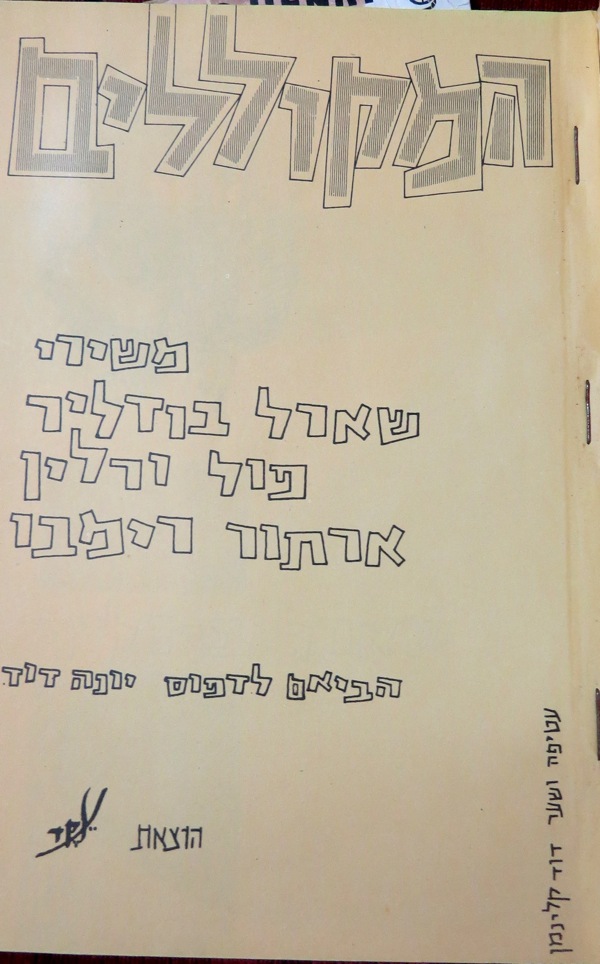 המקוללים
משירי
שארל בודליר
פול ורלין
ארתור רימבו
הביאם לדפוס יונה דוד
הוצאת עקד
עטיפה ושער דוד קלינמן